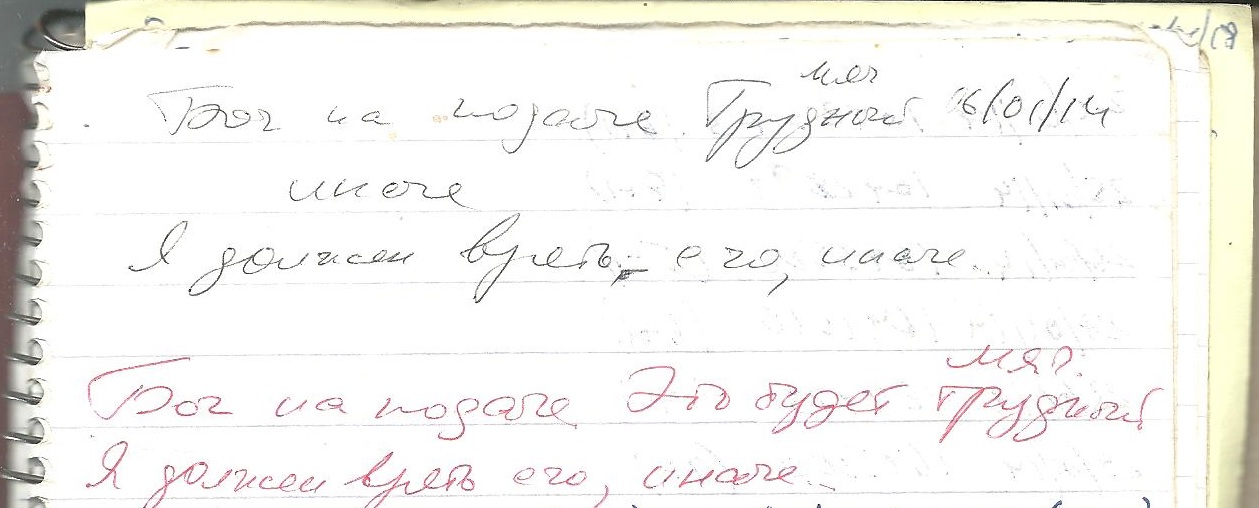 мяч
Боч на подаче Трудный 16/01/14
иначе
Я должен врять его, иначе
мяч.
Боч на подаче Это будет трудный
Я должен врять его, иначе